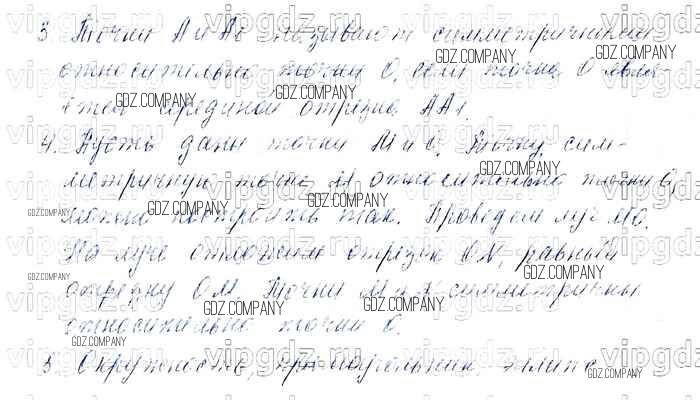 3. Точки А и А1 называют симметричными
относительно точки О, если точка О явля-
ется серединой отрезка АА1.
4. Пусть даны точки М и О. Точку, сим-
метричную точке М относительно точки О
можно построить так. Проведем луч МО.
На луче отложим отрезок ON, равный
отрезку ОМ. Точки М и N симметричны
относительно точки О.
5. Окружность, прямоугольник, элипс